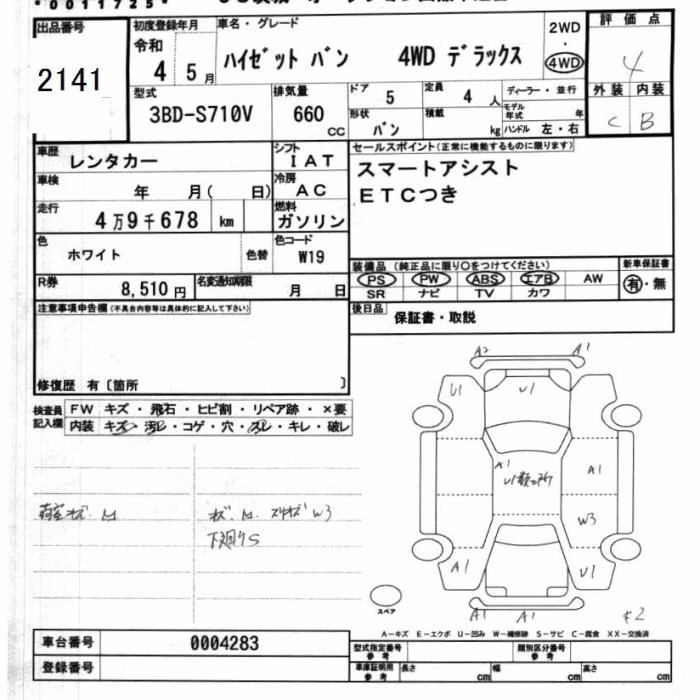 *0011725*
出品番号
2141
初度登録年月
令和
4 5月
車名・グレード
ハイゼット バン 4WD デラックス
2WD
・
4WD
評価点
4
外装 内装
C B
型式
3BD-S710V
排気量
660
CC
ドア
5
定員
4 人
ディーラー・並行
形状
バン
積載
kg
モデル年式 年
ハンドル 左・右
車歴
レンタカー
シフト
IAT
車検
年 月( 日)
冷房
AC
走行
4万9千678 km
燃料
ガソリン
色
ホワイト
色替
色コード
W19
R券
8,510円
名変通知期限
月 日
セールスポイント(正常に機能するものに限ります)
スマートアシスト
ETCつき
装備品 (純正品に限り○をつけてください)
PS PW ABS エアB AW
SR ナビ TV カワ
新車保証書
有・無
後日品
保証書・取説
注意事項申告欄(不具合内容等は具体的に記入して下さい)
修復歴 有〔箇所 〕
検査員
記入欄
FW キズ・飛石・ヒビ割・リペア跡・×要
内装 キズ・汚レ・コゲ・穴・スレ・キレ・破レ
W3
下廻りS
A2 A1
U1 U1
A1
A1
W3
A1 U1
A1 A1
スペア
A-キズ E-エクボ U-凹み W-補修跡 S-サビ C-腐食 XX-交換済
車台番号
0004283
登録番号
型式指定番号
参考
類別区分番号
参考
車庫証明用
参考
長さ cm
幅 cm
高さ cm